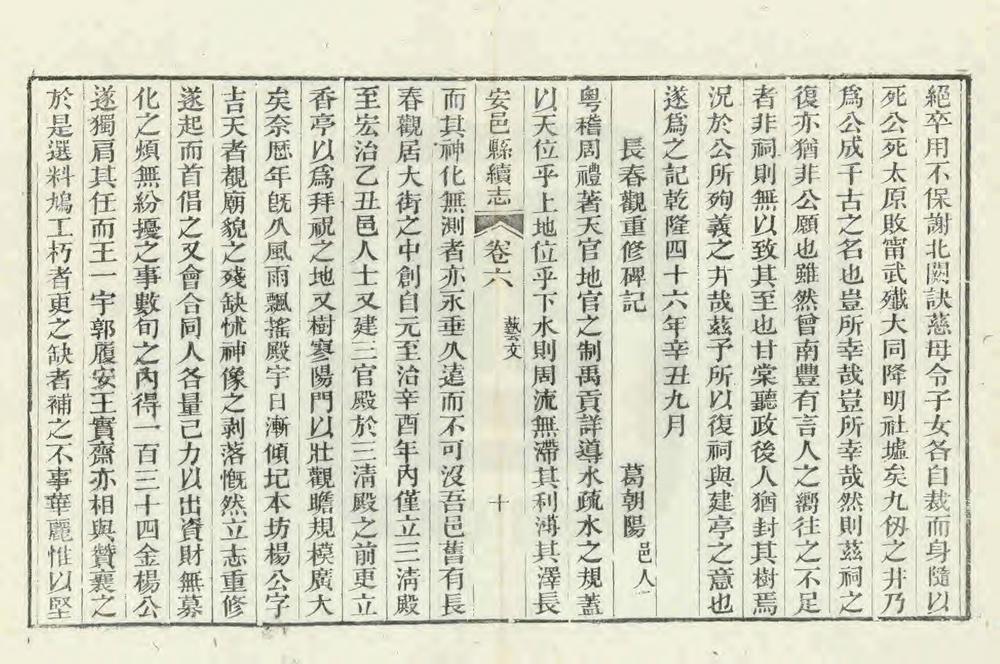 絕卒用不保謝北闕訣慈母令子女各自裁而身隨以
死公死太原敗甯武殱大同降明社墟矣九仭之井乃
爲公成千古之名也豈所幸哉豈所幸哉然則茲祠之
復亦猶非公願也雖然曾南豐有言人之嚮往之不足
者非祠則無以致其至也甘棠聽政後人猶封其樹焉
況於公所殉義之井哉茲予所以復祠與建亭之意也
遂爲之記乾隆四十六年辛丑九月
長春觀重修碑記 葛朝陽 邑人
粤稽周禮著天官地官之制禹貢詳導水疏水之規蓋
以天位乎上地位乎下水則周流無滯其利溥其澤長
安邑縣續志 卷六 藝文 十
而其神化無測者亦永垂久遠而不可沒吾邑舊有長
春觀居大街之中創自元至治辛酉年內僅立三淸殿
至宏治乙丑邑人士又建三官殿於三淸殿之前更立
香亭以爲拜祝之地又樹寥陽門以壯觀瞻規模廣大
矣奈歷年旣久風雨飄搖殿宇日漸傾圮本坊楊公字
吉天者覩廟貌之殘缺怵神像之剥落慨然立志重修
遂起而首倡之又會合同人各量己力以出資財無募
化之煩無紛擾之事數旬之內得一百三十四金楊公
遂獨肩其任而王一宇郭履安王實齋亦相與贊襄之
於是選料鳩工朽者更之缺者補之不事華麗惟以堅